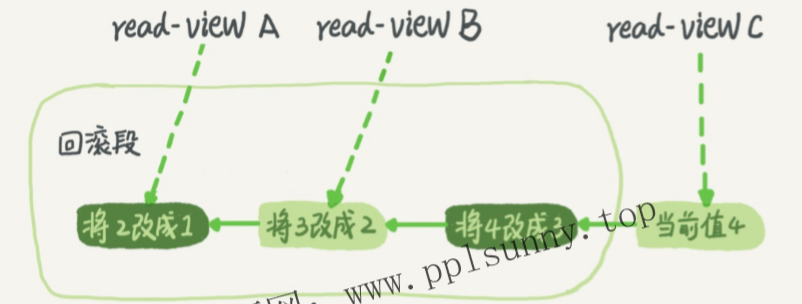 read-view A read-view B read-view C
回滚段
将2改成1 将3改成2 将4改成3 当前值4
网: www.pplsunny.top